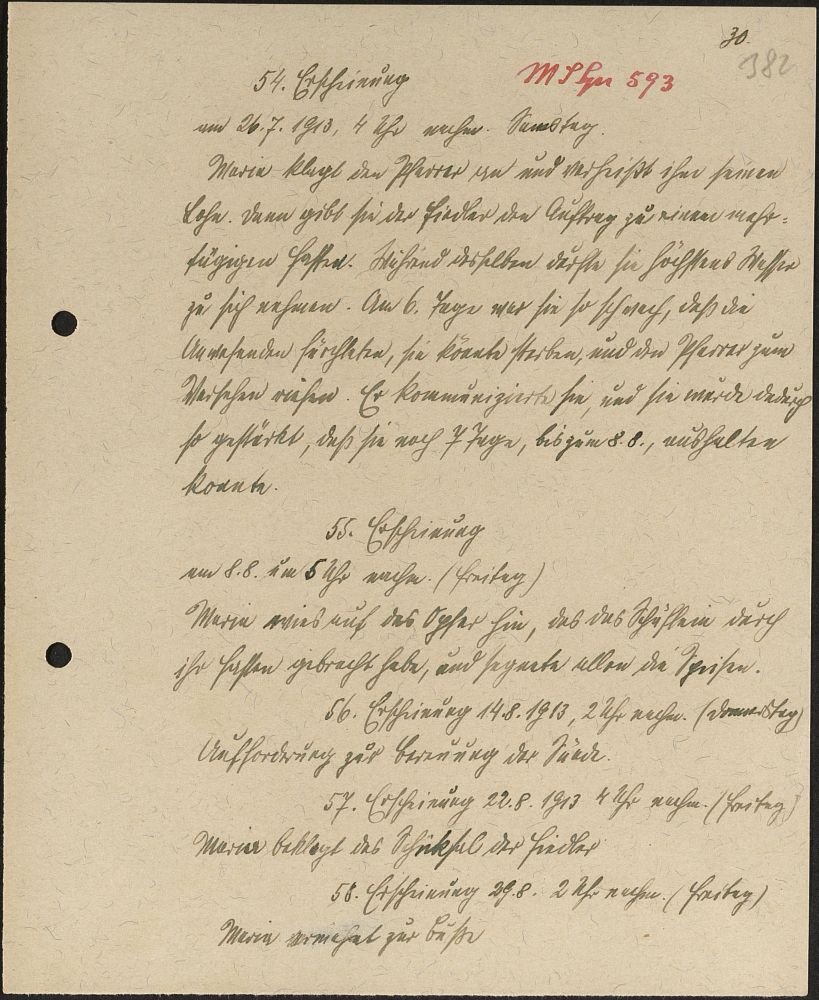 30.
382
54. Erscheinung
MSHr 593
am 26.7. 1913, 4 Uhr nachm. Samstag.
Maria klagt den Pfarrer an und verheißt ihm seinen
Lohn. Dann gibt sie der Fiedler den Auftrag zu einem mehr-
tägigen Fasten. Während desselben durfte sie höchstens Wasser
zu sich nehmen. Am 6. Tage war sie so schwach, daß die
Anwesenden fürchteten, sie könnte sterben, und den Pfarrer zum
Versehen riefen. Er kommunizierte sie, und sie wurde dadurch
so gestärkt, daß sie noch 7 Tage, bis zum 8.8., aushalten
konnte.
55. Erscheinung
am 8.8. um 5 Uhr nachm. (Freitag)
Maria wies auf das Opfer hin, das das Schäflein durch
ihr Fasten gebracht habe, und segnete allen die Speisen.
56. Erscheinung 14.8.1913, 2 Uhr nachm. (Donnerstag)
Aufforderung zur Bereuung der Sünde.
57. Erscheinung 22.8. 1913 4 Uhr nachm. (Freitag)
Maria beklagt das Schicksal der Fiedler
58. Erscheinung 29.8. 2 Uhr nachm. (Freitag)
Maria ermahnt zur Buße